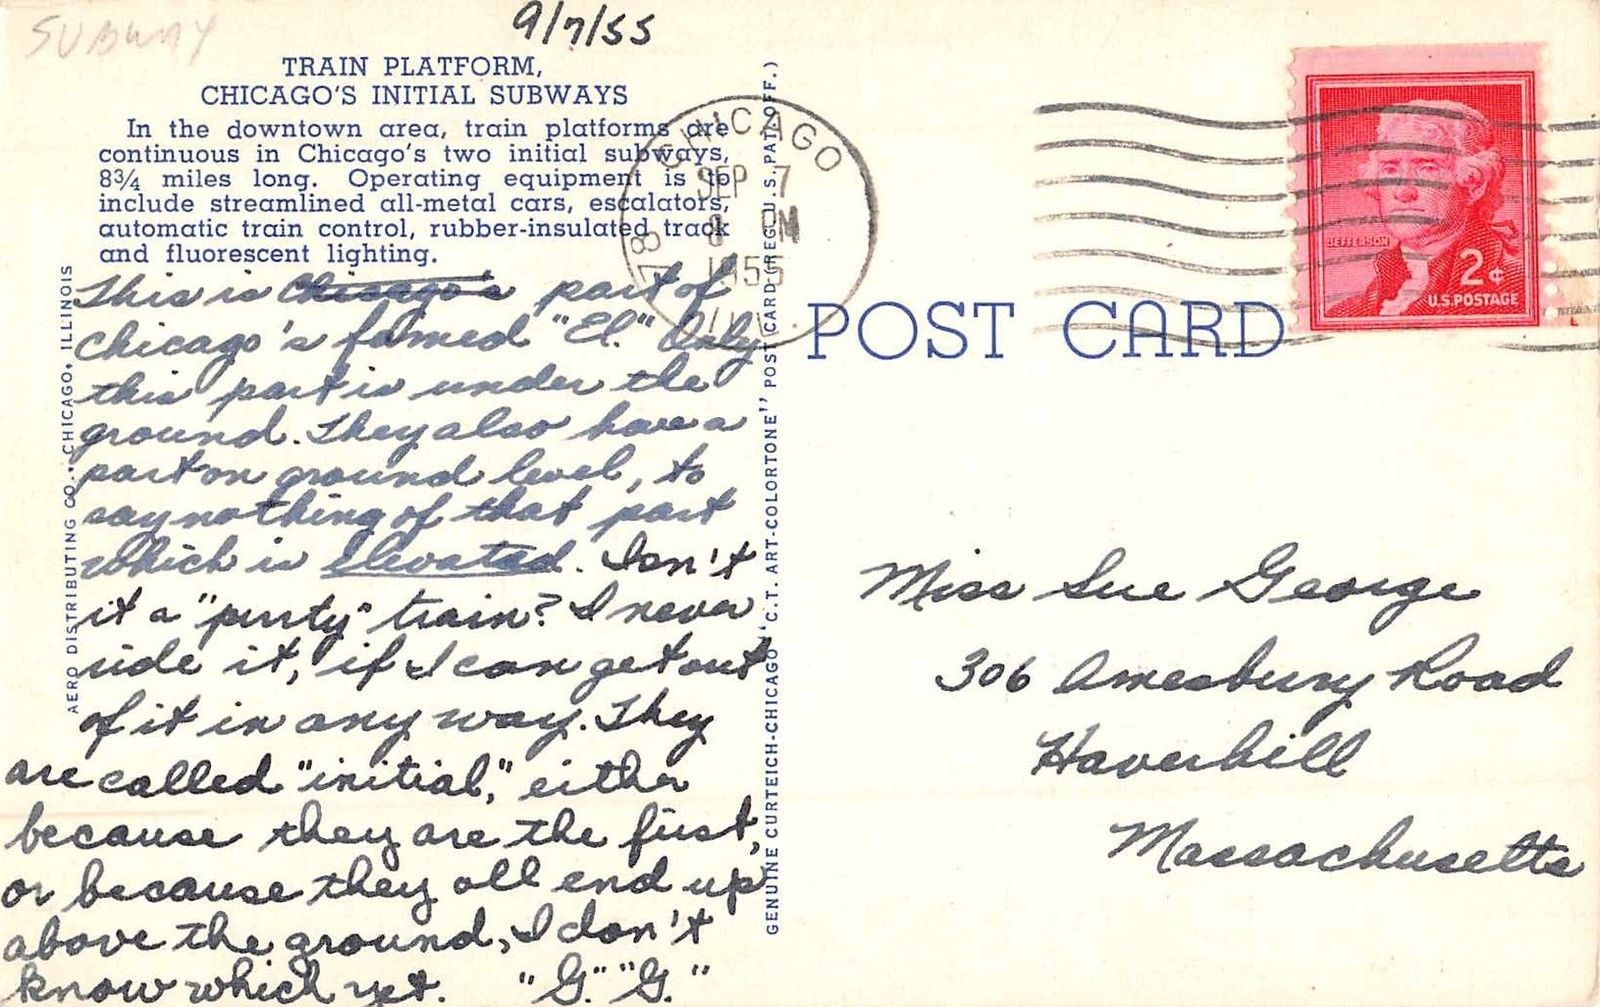 SUBWAY
9/7/55
TRAIN PLATFORM,
CHICAGO'S INITIAL SUBWAYS
In the downtown area, train platforms are
continuous in Chicago's two initial subways,
8¾ miles long. Operating equipment is to
include streamlined all-metal cars, escalators,
automatic train control, rubber-insulated track
and fluorescent lighting.
This is Chicago's part of
Chicago's famed "El." Only
this part is under the
ground. They also have a
part on ground level, to
say nothing of that part
which is elevated. Isn't
it a "purty" train? I never
ride it, if I can get out
of it in any way. They
are called "initial," either
because they are the first,
or because they all end up
above the ground, I don't
know which yet. "G." "G."
AERO DISTRIBUTING CO., CHICAGO, ILLINOIS
GENUINE CURTEICH-CHICAGO "C.T. ART-COLORTONE" POST CARD (REG. U.S. PAT. OFF.)
CHICAGO
SEP 7
8 PM
1955
ILL.
POST CARD
JEFFERSON
2¢
U.S. POSTAGE
Miss Sue George
306 Amesbury Road
Haverhill
Massachusetts